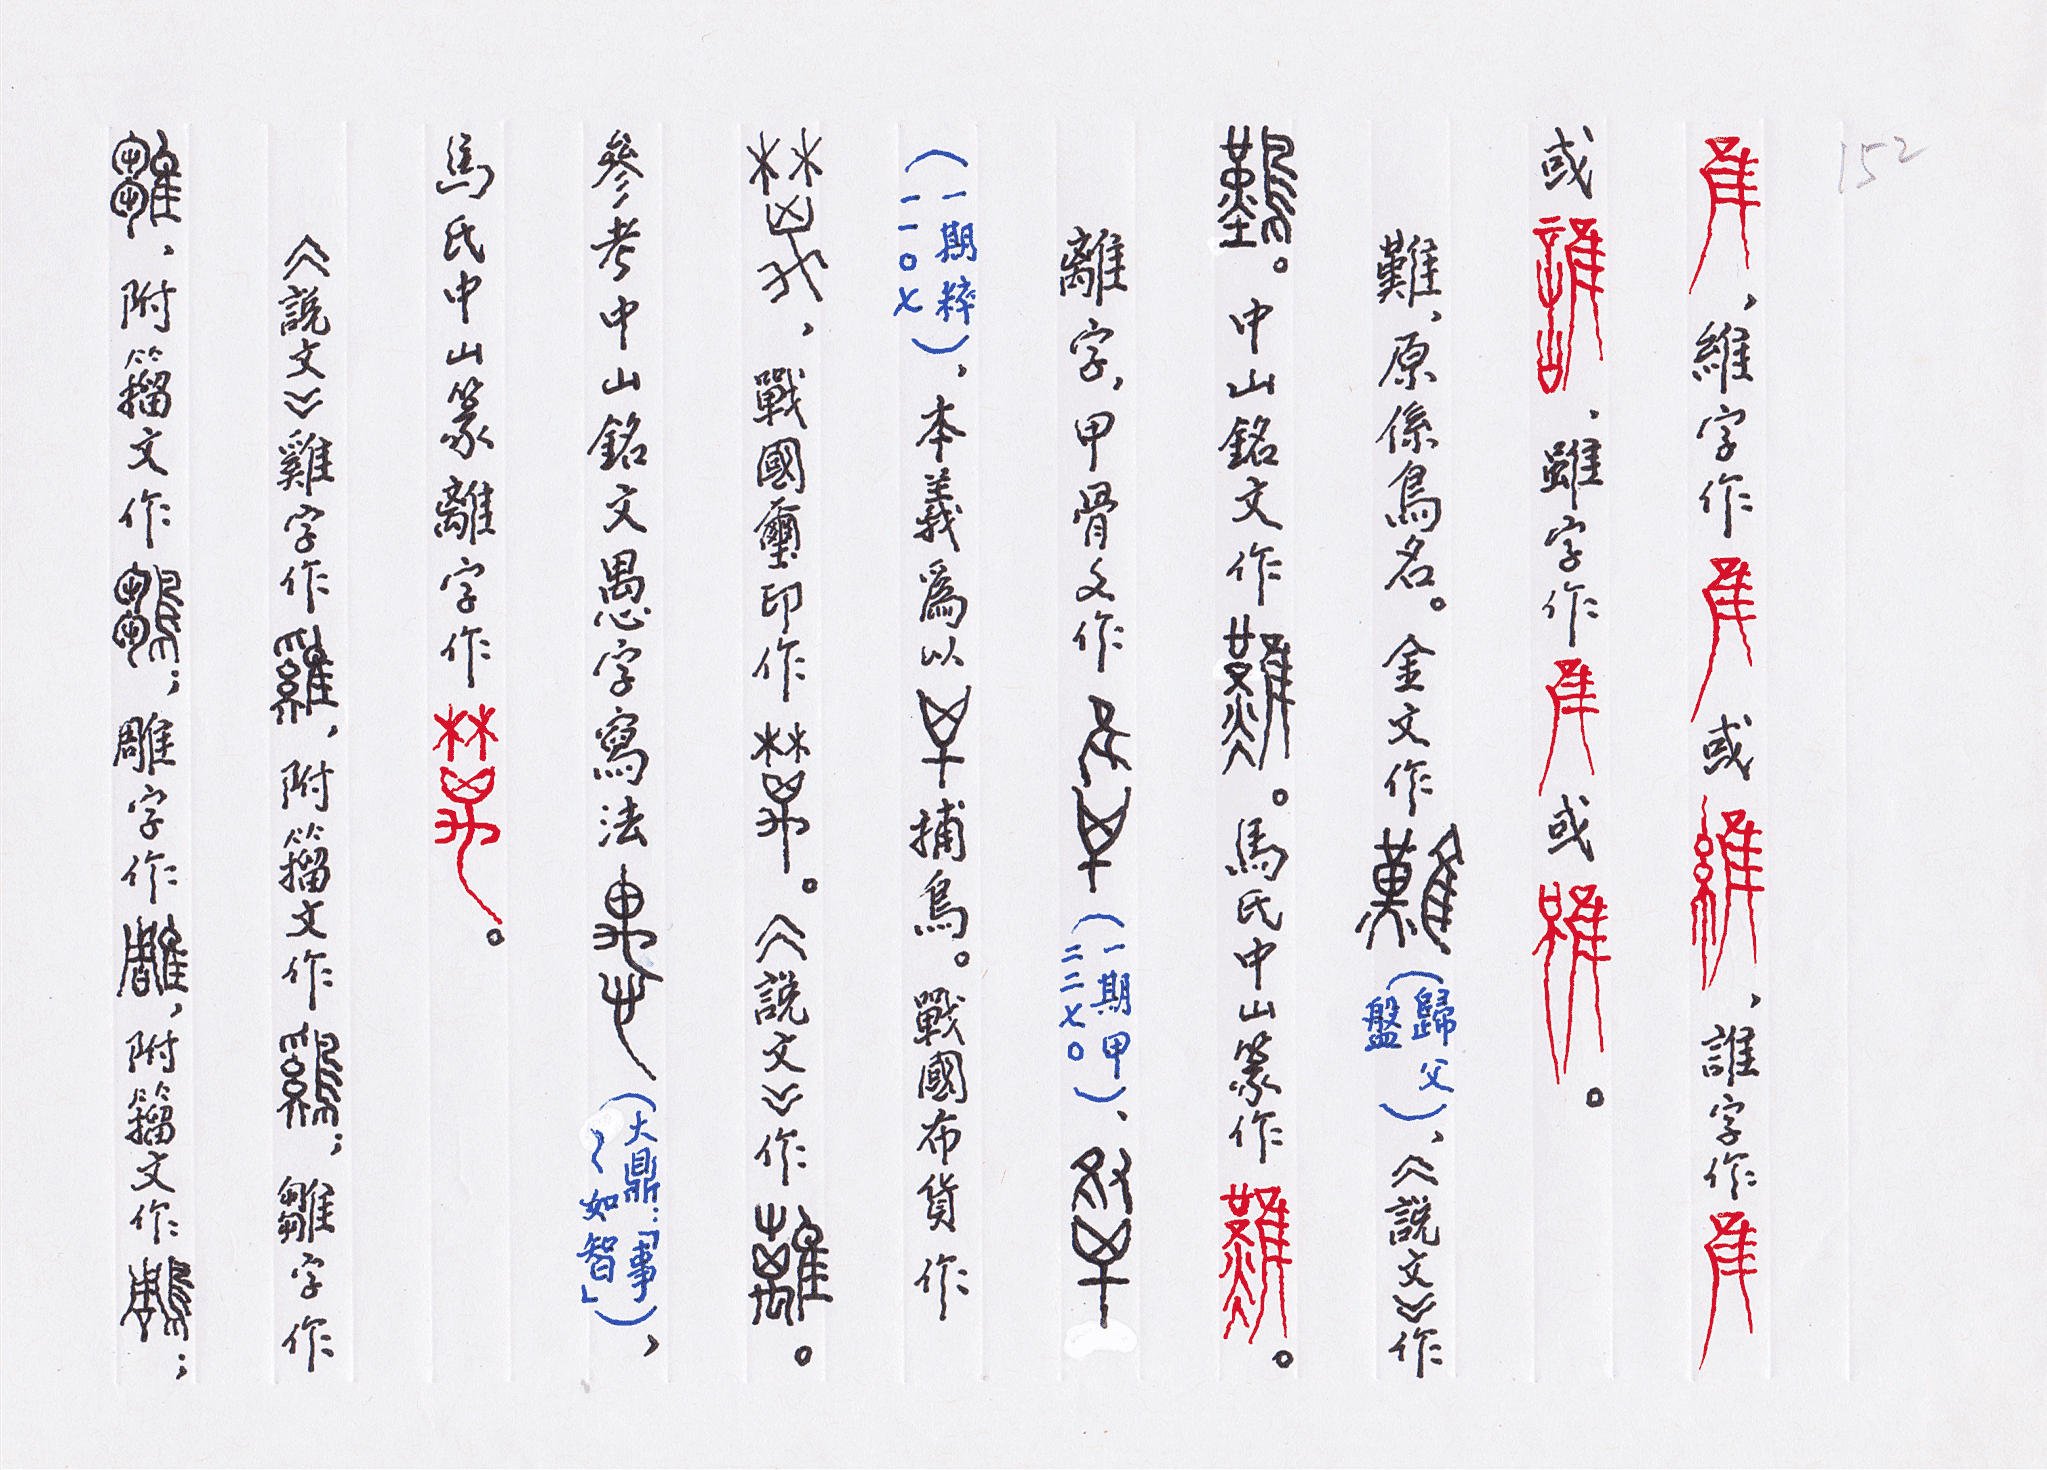 152
隹，維字作隹或維，誰字作隹
或誰，雖字作隹或雖。
難，原係鳥名。金文作難（歸父盤）、《説文》作
鸛。中山銘文作難。馬氏中山篆作難。
離字，甲骨文作（一期甲二二七〇）、
（一期粹一一〇七），本義爲以捕鳥。戰國布貨作
，戰國璽印作。《説文》作離。
參考中山銘文愚字寫法（大鼎：「事~如智」），
馬氏中山篆離字作。
《説文》雞字作雞，附籀文作鷄；雛字作
，附籀文作；雕字作雕，附籀文作鵰；